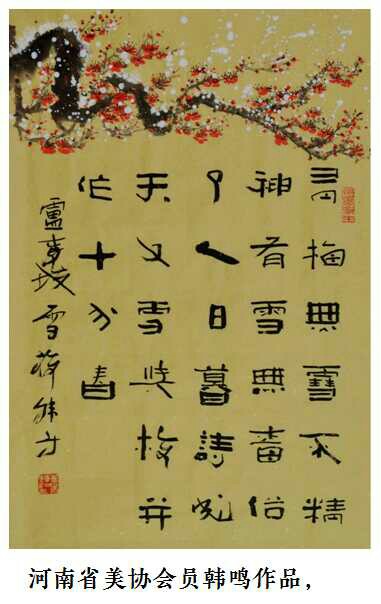 有梅無雪不精
神有雪無俗
了人日暮詩成
天又雪與梅并
作十分春
盧梅坡雪
河南省美协会员韩鸣作品，